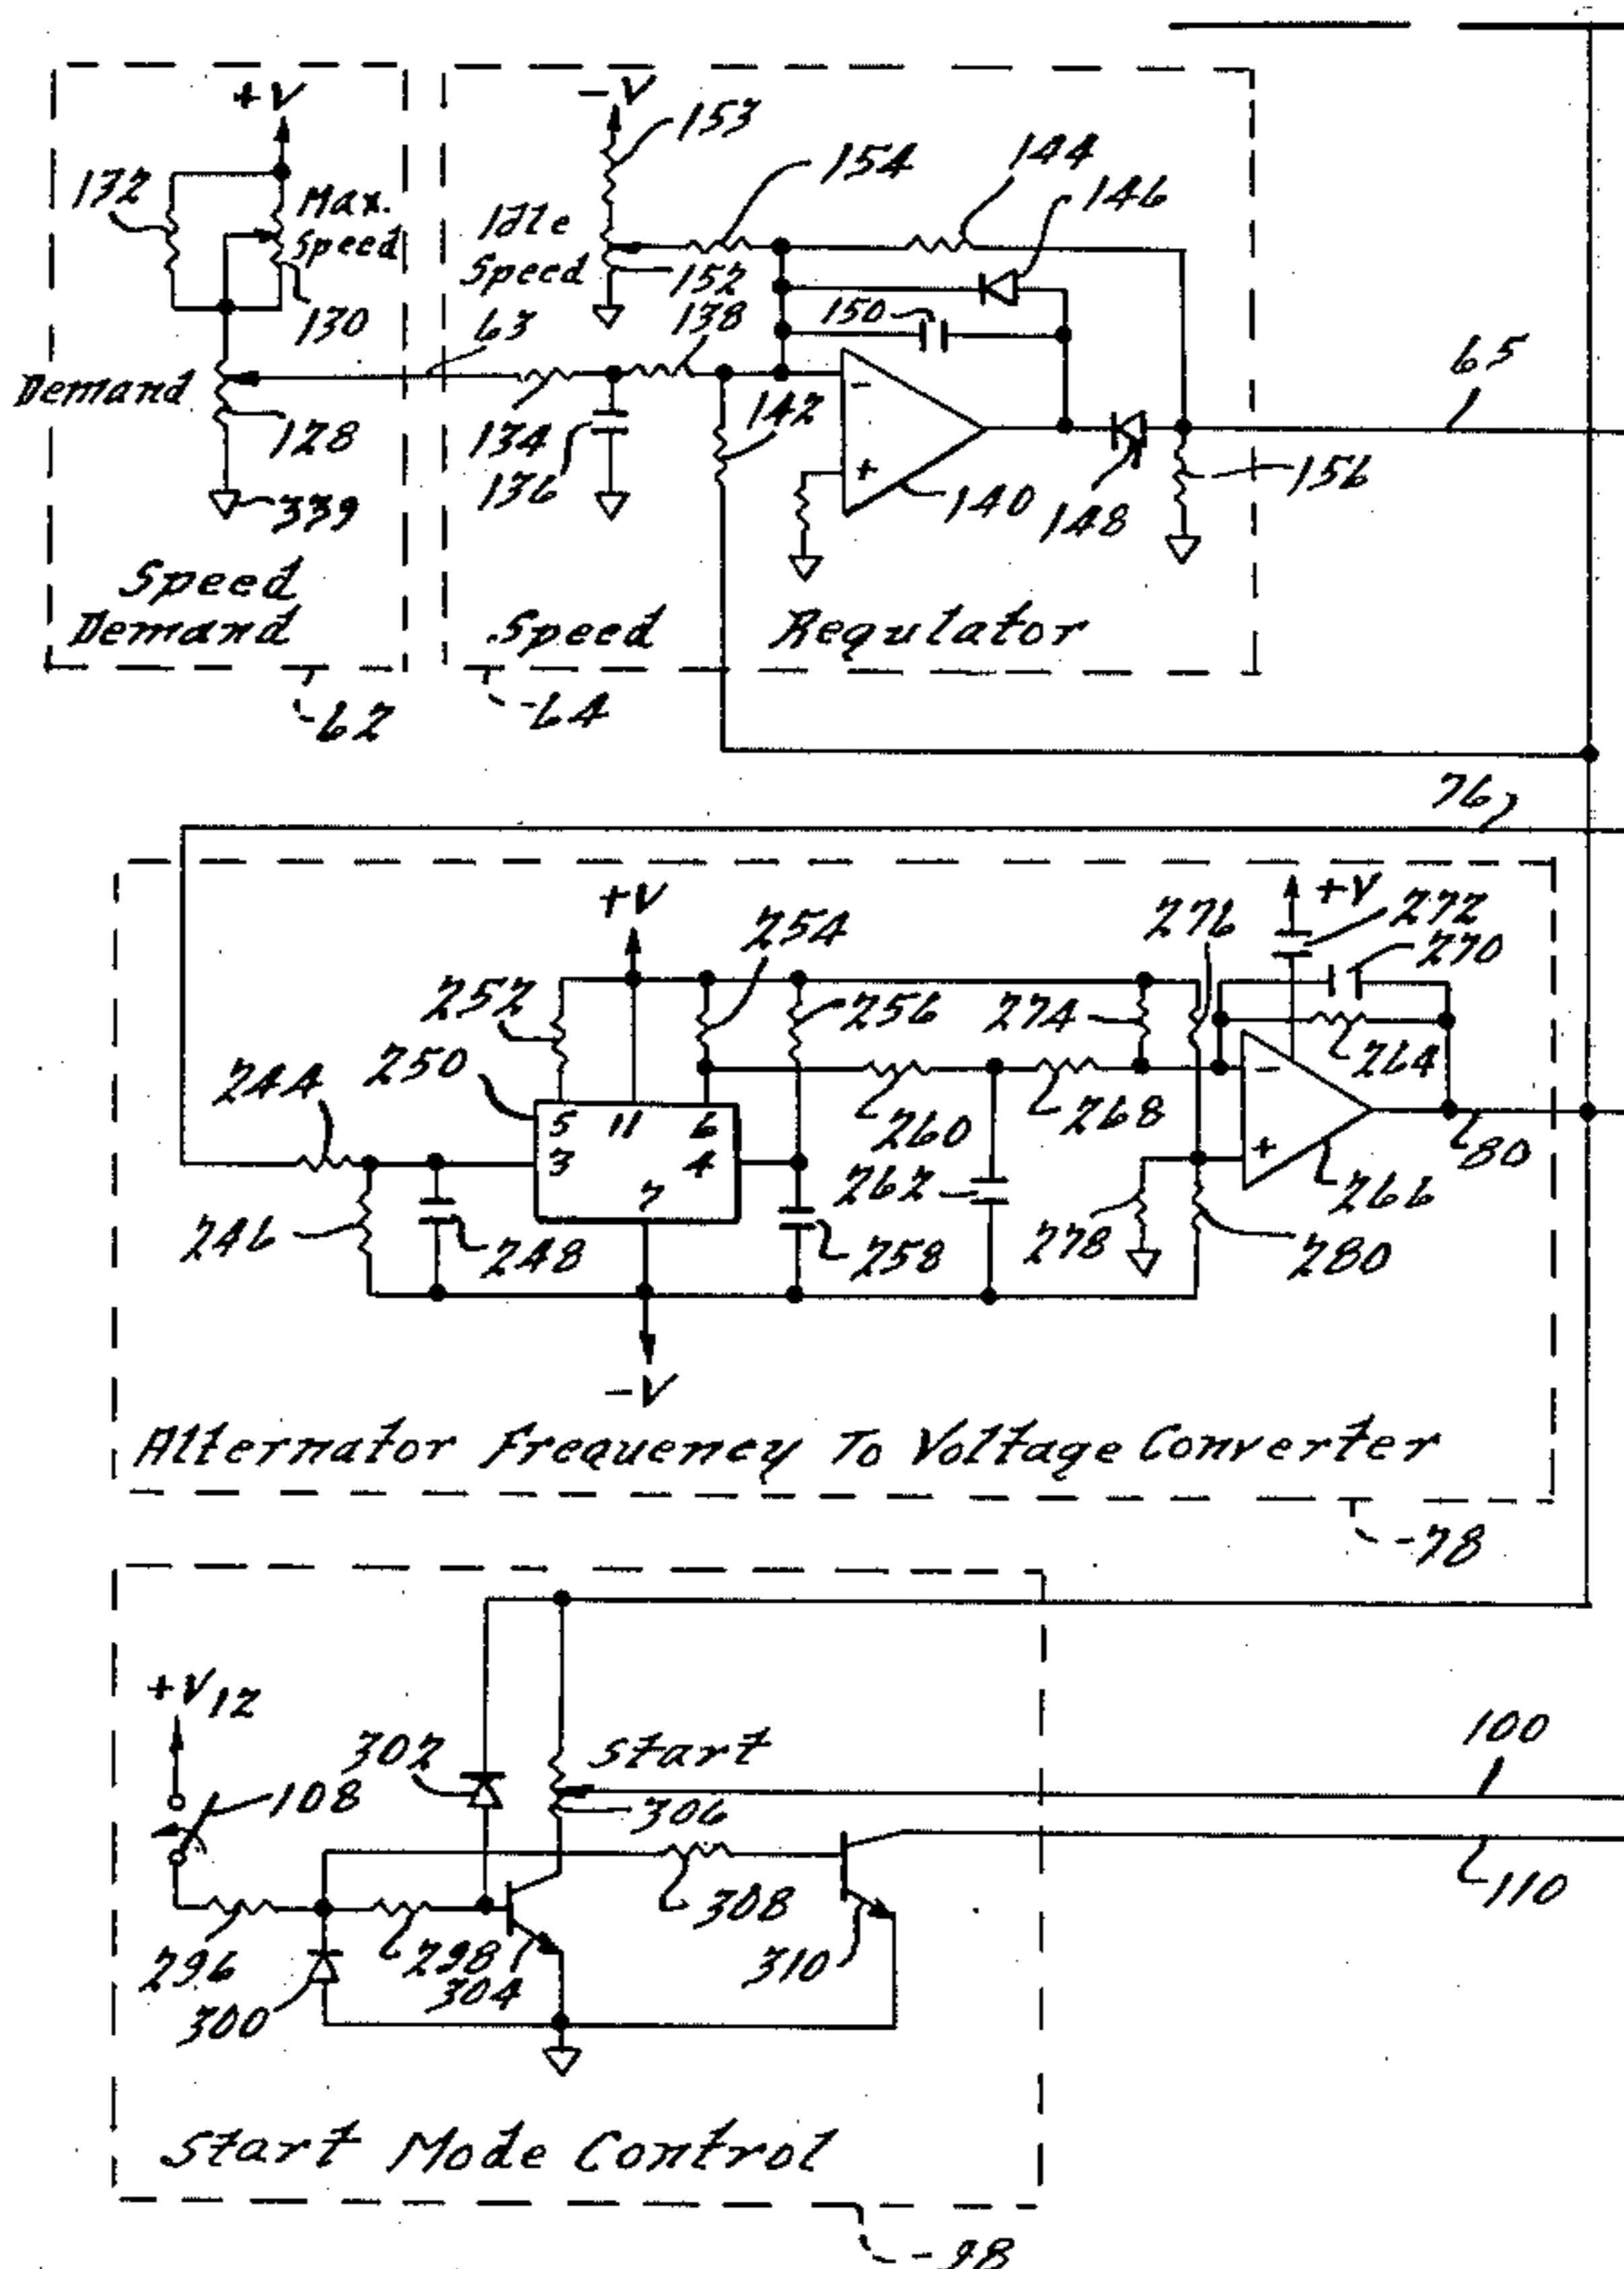 +V
132
Max.
Speed
130
Demand
128
339
Speed
Demand
62
-V
153
154
144
146
Idle
Speed
152
138
150
63
134
136
142
-
+
140
148
156
65
Speed Regulator
64
76
+V
254
276
+V
272
270
252
256
274
264
250
244
5 11 6
3 4
7
260
268
-
+
80
246
248
258
262
278
280
266
-V
Alternator Frequency To Voltage Converter
78
+V12
302
Start
100
108
306
308
110
296
298
304
310
300
Start Mode Control